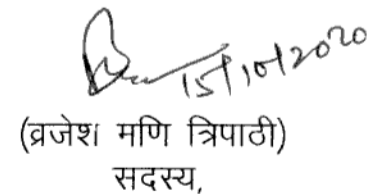 15/10/2020
(व्रजेश मणि त्रिपाठी)
सदस्य,